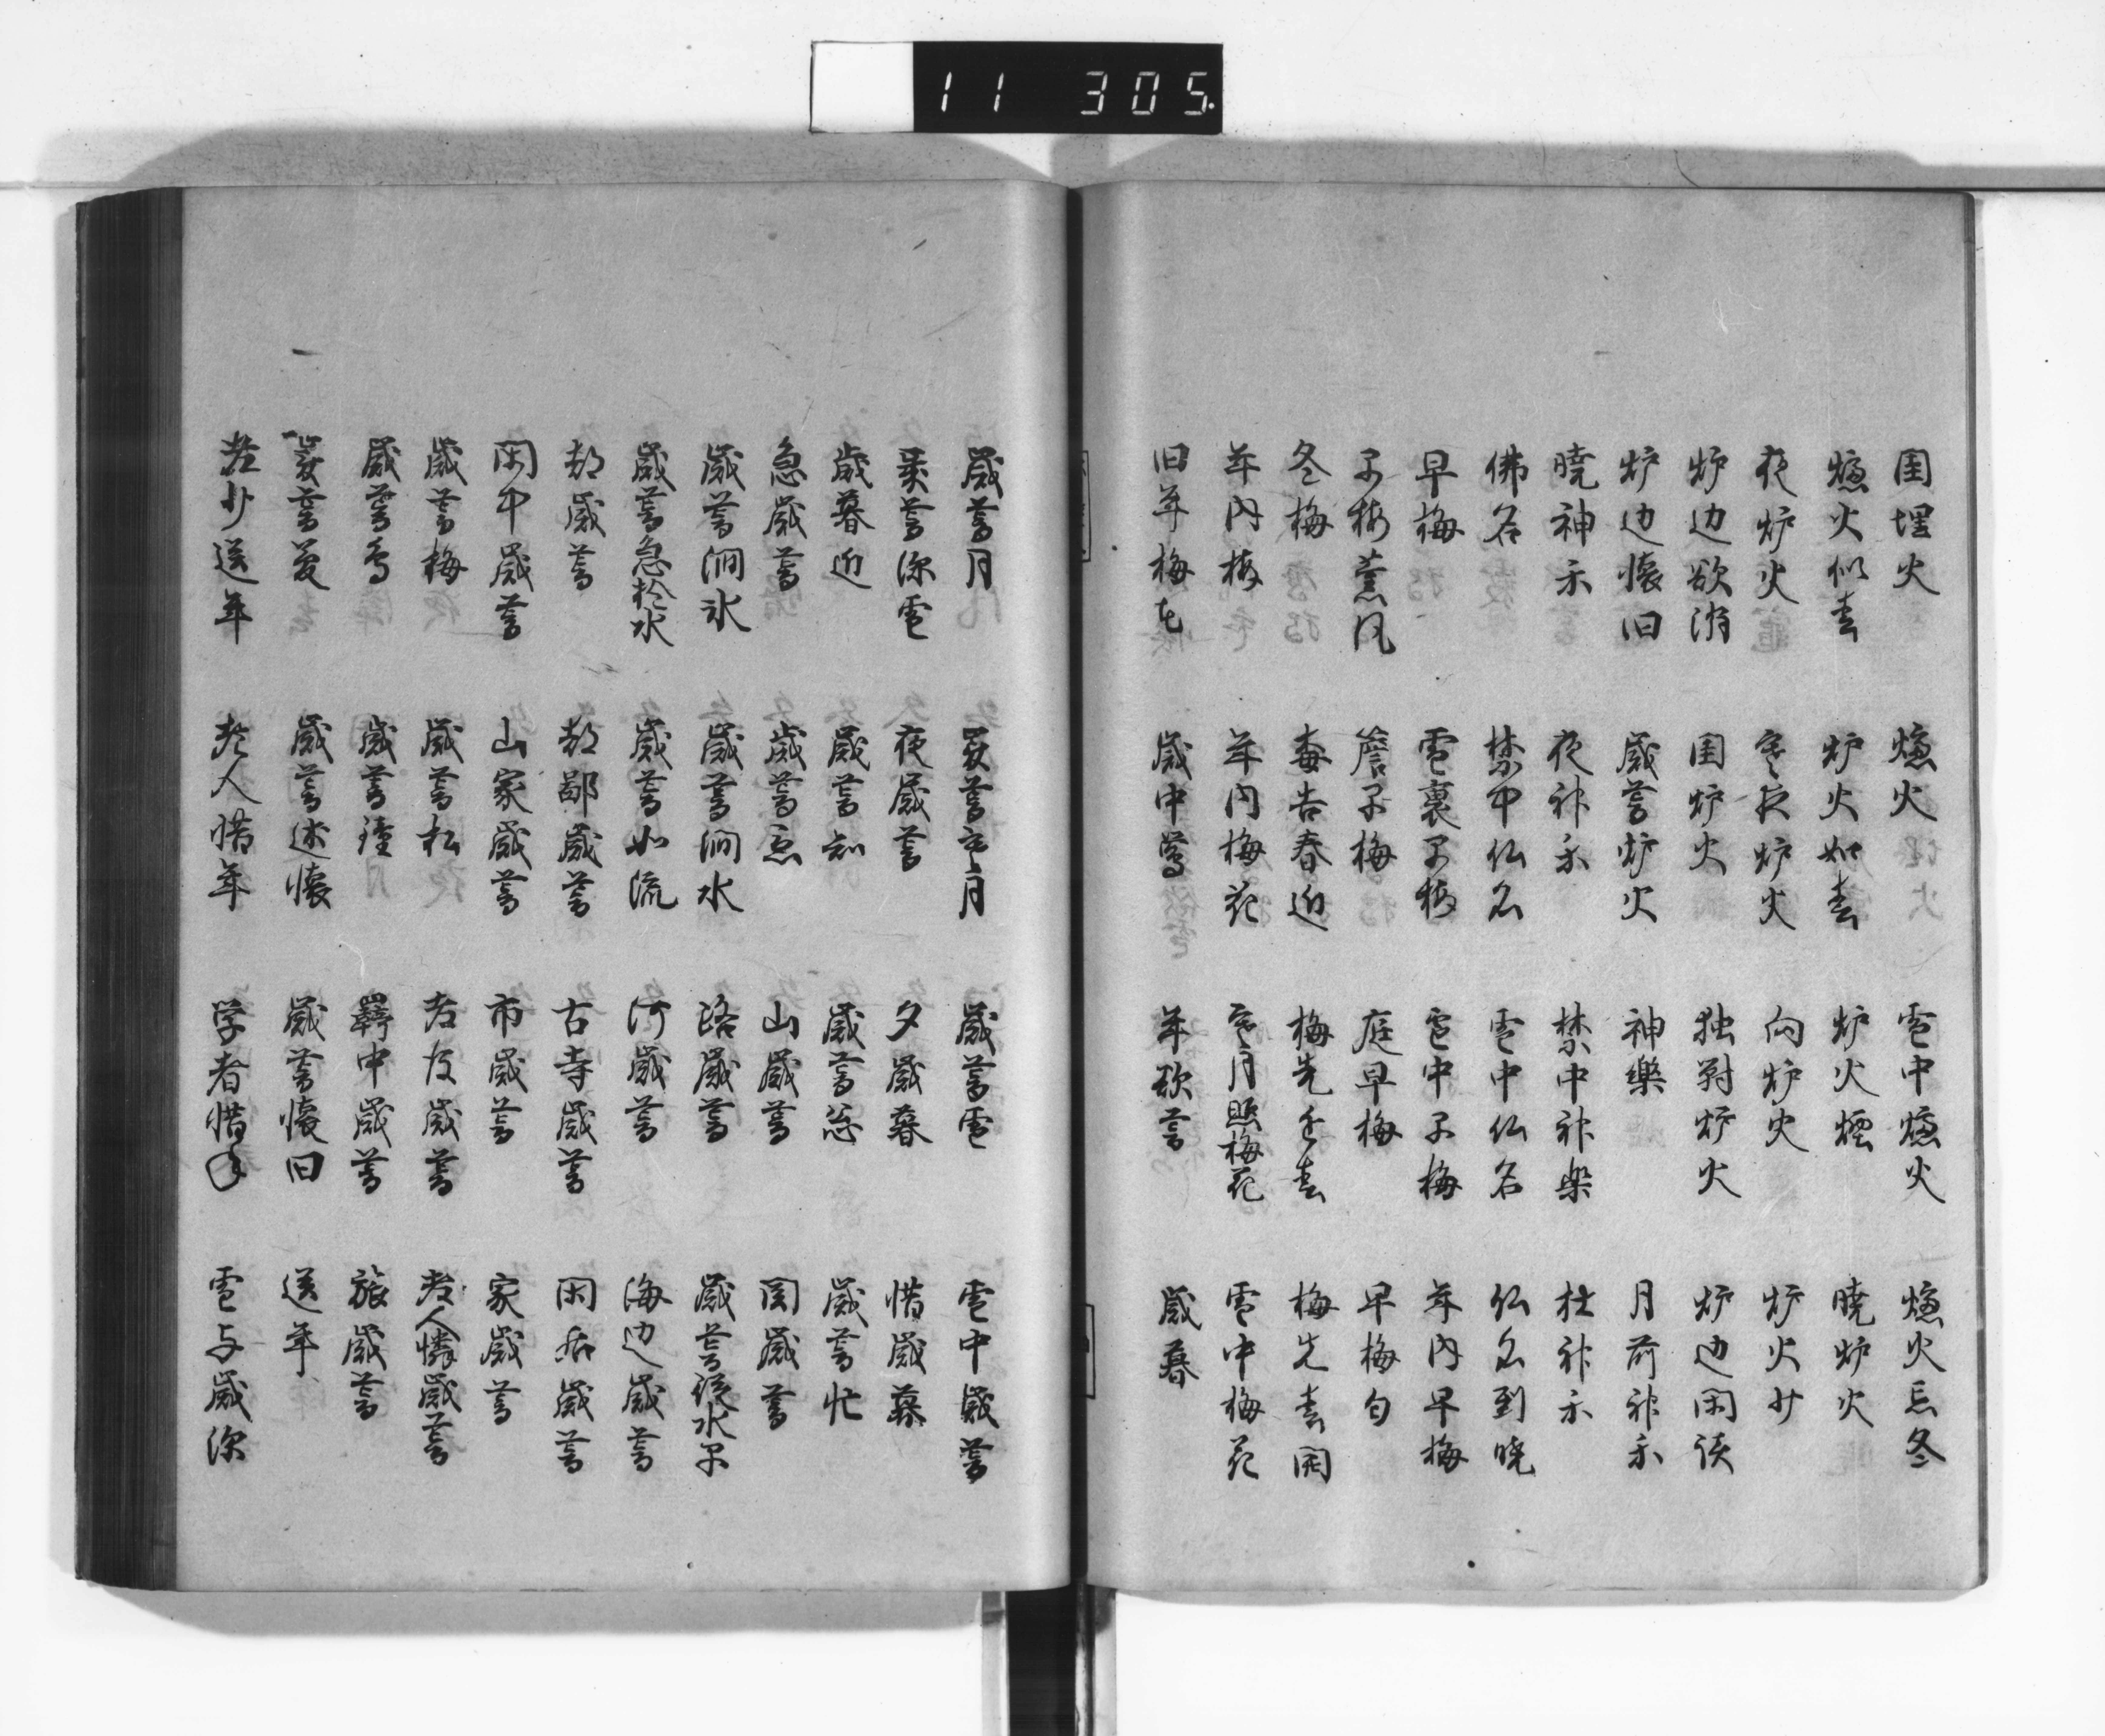 11 305
閨埋火 爐火 雪中爐火 爐火忘冬
爐火似春 炉火如春 炉火煙 暁炉火
夜炉火 寒夜炉火 向炉火 炉火少
炉辺欲消 閨炉火 独対炉火 炉辺閑談
炉辺懐旧 歳暮炉火 神樂 月前神楽
暁神楽 夜神楽 禁中神楽 社神楽
佛名 禁中仏名 雪中仏名 仏名到暁
早梅 雪裏早梅 雪中早梅 年内早梅
早梅薫風 簷早梅 庭早梅 早梅匂
冬梅 毎告春近 梅先春 梅先春開
年内梅 年内梅花 寒月照梅花 雪中梅花
旧年梅花 歳中鶯 年欲暮 歳暮
歳暮月 歳暮寒月 歳暮雪 雪中歳暮
歳暮深雪 夜歳暮 夕歳暮 惜歳暮
歳暮近 歳暮知 歳暮忩 歳暮忙
急歳暮 歳暮急 山歳暮 関歳暮
歳暮澗氷 歳暮澗水 路歳暮 歳暮従水早
歳暮急於水 歳暮如流 河歳暮 海辺歳暮
都歳暮 都鄙歳暮 古寺歳暮 閑居歳暮
閑中歳暮 山家歳暮 市歳暮 家歳暮
歳暮梅 歳暮松 老後歳暮 老人憐歳暮
歳暮鳥 歳暮鐘 羇中歳暮 旅歳暮
歳暮夢 歳暮述懐 歳暮懐旧 送年
老少送年 老人惜年 学者惜年 雪与歳深